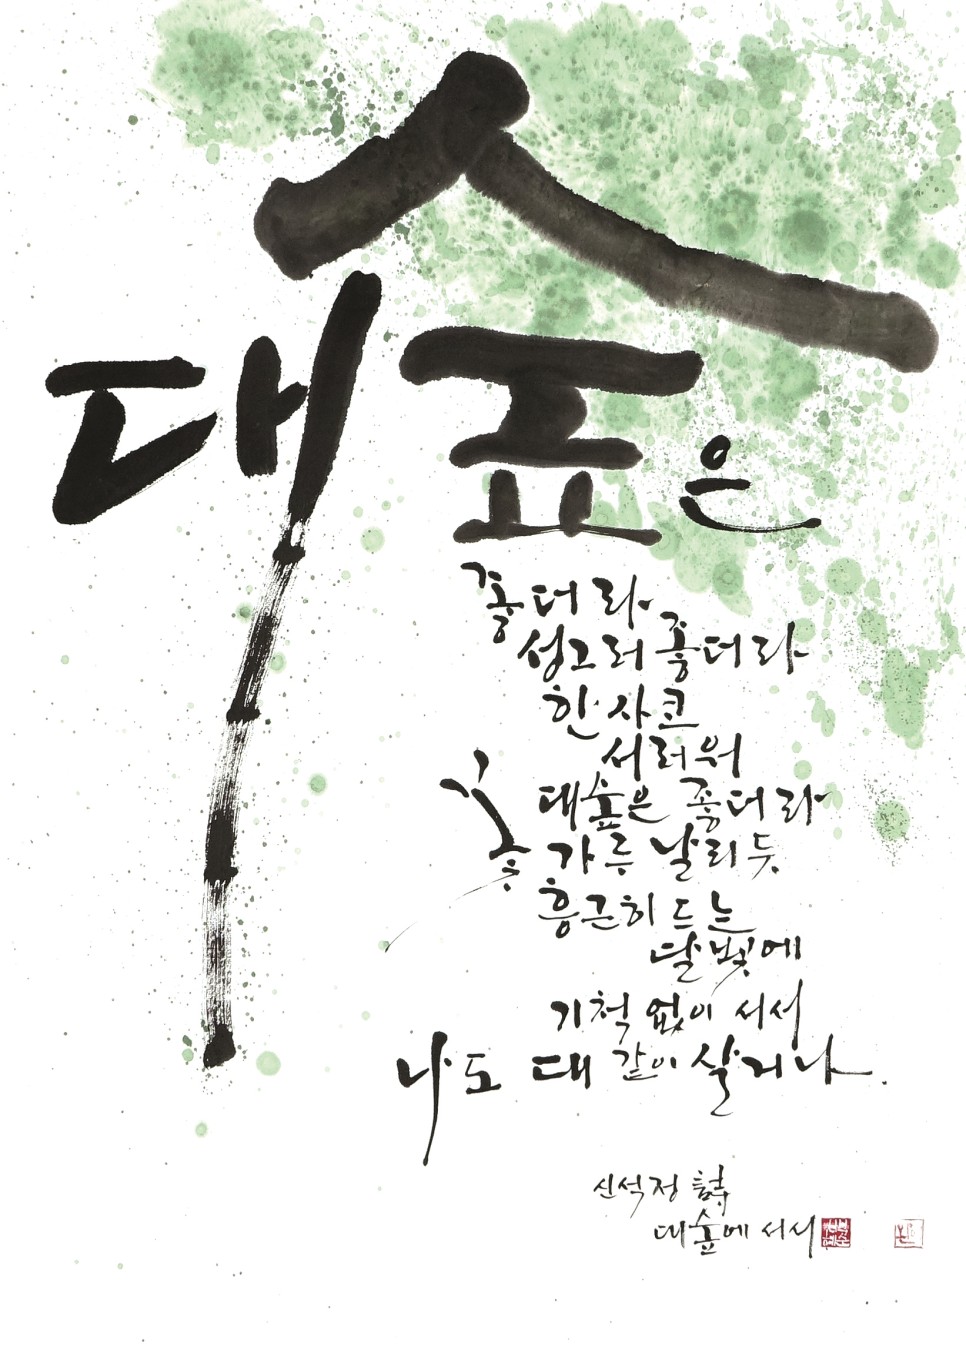 대숲은
좋더라
성그러 좋더라
한사코
서러워
대숲은 좋더라
꽃가루 날리듯
흥근히 드는
달빛에
기척 없이 서서
나도 대 같이 살거나.
신석정 詩
대숲에 서서